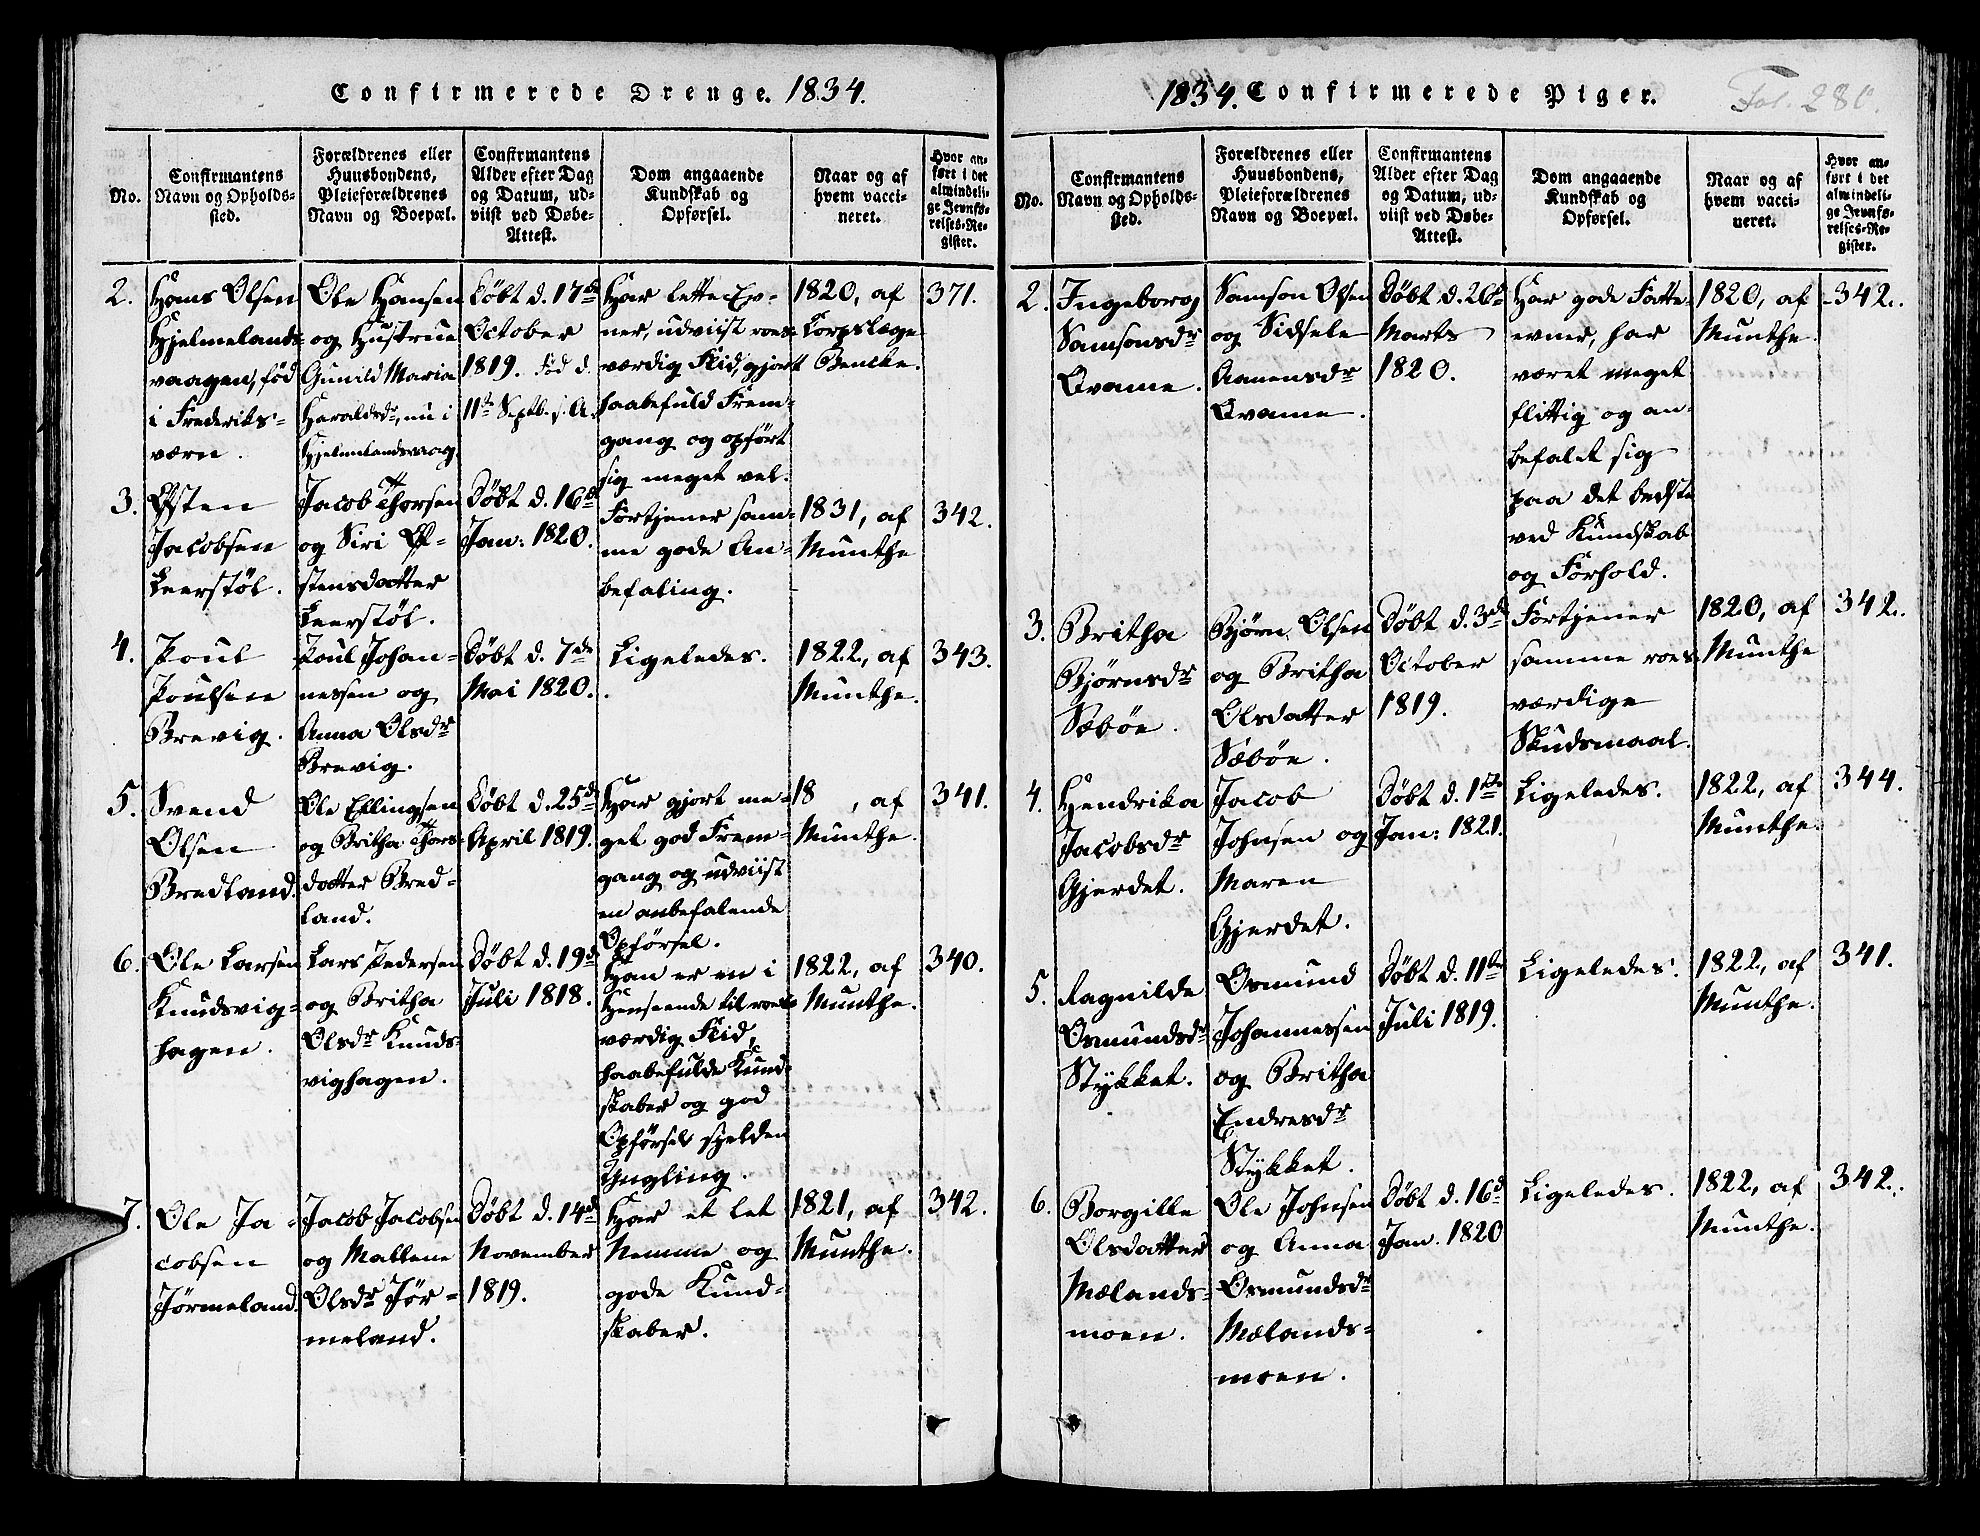 Confirmerede Drenge. 1834.
No.
Confirmantens
Navn og Opholds-
sted.
Forældrenes eller
Huusbondens,
Pleieforældrenes
Navn og Boepæl.
Confirmantens
Alder efter Dag
og Datum, ud-
viist ved Døbe-
Attest.
Dom angaaende
Kundskab og
Opførsel.
Naar og af
hvem vacci-
neret.
Hvor an-
ført i det
almindeli-
ge Jevnfø-
relses-Re-
gister.
2.
Hans Olsen
Hjelmelands-
vaagen, fød
i Frederiks-
værn.
Ole Hansen
og Hustrue
Gunild Maria
Haraldsdr, nu i
Hjelmelandsvaag
Døbt d. 17de
October
1819. Fød d.
11te Septb. s. A.
Har lette Ev-
ner, udviist roes-
værdig Flid, gjort
haabefuld Frem-
gang og opført
sig meget vel.
1820, af
Corpslæge
Bencke.
371.
3.
Østen
Jacobsen
Leerstøl.
Jacob Thorsen
og Siri Ø-
stensdatter
Leerstøl.
Døbt d. 16de
Jan: 1820.
Fortjener sam-
me gode An-
befaling.
1831, af
Munthe
342.
4.
Poul
Poulsen
Brevig.
Poul Johan-
nessen og
Anna Olsdr
Brevig.
Døbt d. 7de
Mai 1820.
Ligeledes.
1822, af
Munthe.
343.
5.
Svend
Olsen
Bredland.
Ole Ellingsen
og Britha Thors-
datter Bred-
land.
Døbt d. 25de
April 1819.
Har gjort me-
get god Frem-
gang og udviist
en anbefalende
Opførsel.
18 , af
Munthe.
341.
6.
Ole Larsen
Knudsvig-
hagen.
Lars Pedersen
og Britha
Olsdr Knuds-
vighagen.
Døbt d. 19de
Juli 1818.
Han er en i
Henseende til roes-
værdig Flid,
haabefulde Kund-
skaber og god
Opførsel sjelden
Yngling.
1822, af
Munthe.
340.
7.
Ole Ja-
cobsen
Jørmeland.
Jacob Jacobsen
og Mallene
Olsdr Jør-
meland.
Døbt d. 14de
November
1819.
Har et let
Nemme og
gode Kund-
skaber.
1821, af
Munthe.
342.
1834. Confirmerede Piger.
Fol. 280.
No.
Confirmantens
Navn og Opholds-
sted.
Forældrenes eller
Huusbondens,
Pleieforældrenes
Navn og Boepæl.
Confirmantens
Alder efter Dag
og Datum, ud-
viist ved Døbe-
Attest.
Dom angaaende
Kundskab og
Opførsel.
Naar og af
hvem vacci-
neret.
Hvor an-
ført i det
almindeli-
ge Jevnfø-
relses-Re-
gister.
2.
Ingeborg
Samsonsdr
Qvame.
Samson Olsen
og Sidsele
Aanensdr
Qvame.
Døbt d. 26de
Marts
1820.
Har gode Fatte-
evner, har
været meget
flittig og an-
befalet sig
paa det bedste
ved Kundskab
og Forhold.
1820, af
Munthe
342.
3.
Britha
Bjørnsdr
Sæbøe.
Bjørn Olsen
og Britha
Olsdatter
Sæbøe.
Døbt d. 3de
October
1819.
Fortjener
samme roes-
værdige
Skudsmaal.
1820, af
Munthe
342.
4.
Hendrika
Jacobsdr
Gjerdet.
Jacob
Johnsen og
Maren
Gjerdet.
Døbt d. 1ste
Jan: 1821.
Ligeledes.
1822, af
Munthe.
344.
5.
Ragnilde
Osmundsdr
Stykket.
Osmund
Johannessen
og Britha
Endresdr
Stykket.
Døbt d. 11te
Juli 1819.
Ligeledes.
1822, af
Munthe.
341.
6.
Borgille
Olsdatter
Mælands-
moen.
Ole Johnsen
og Anna
Osmundsdr
Mælands-
moen.
Døbt d. 16de
Jan. 1820
Ligeledes.
1822, af
Munthe.
342.